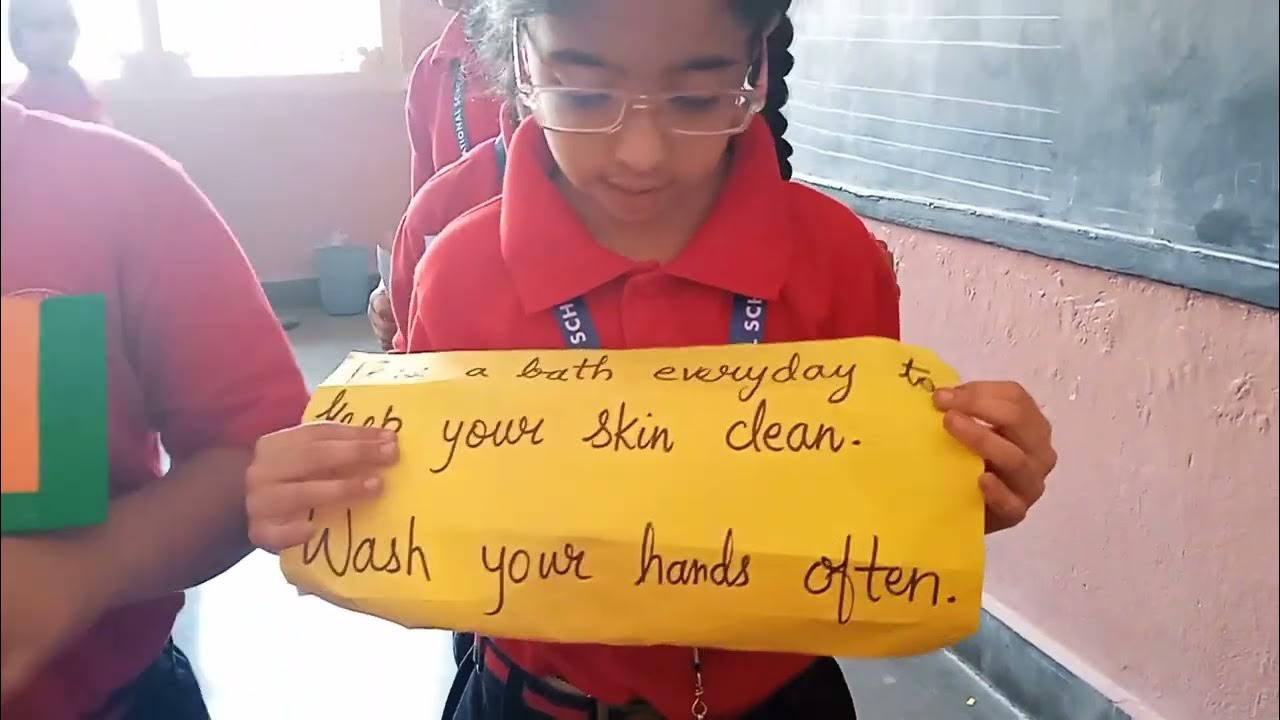 a bath everyday to
keep your skin clean.
Wash your hands often.
SCH
L SCH
IONAL SCHO